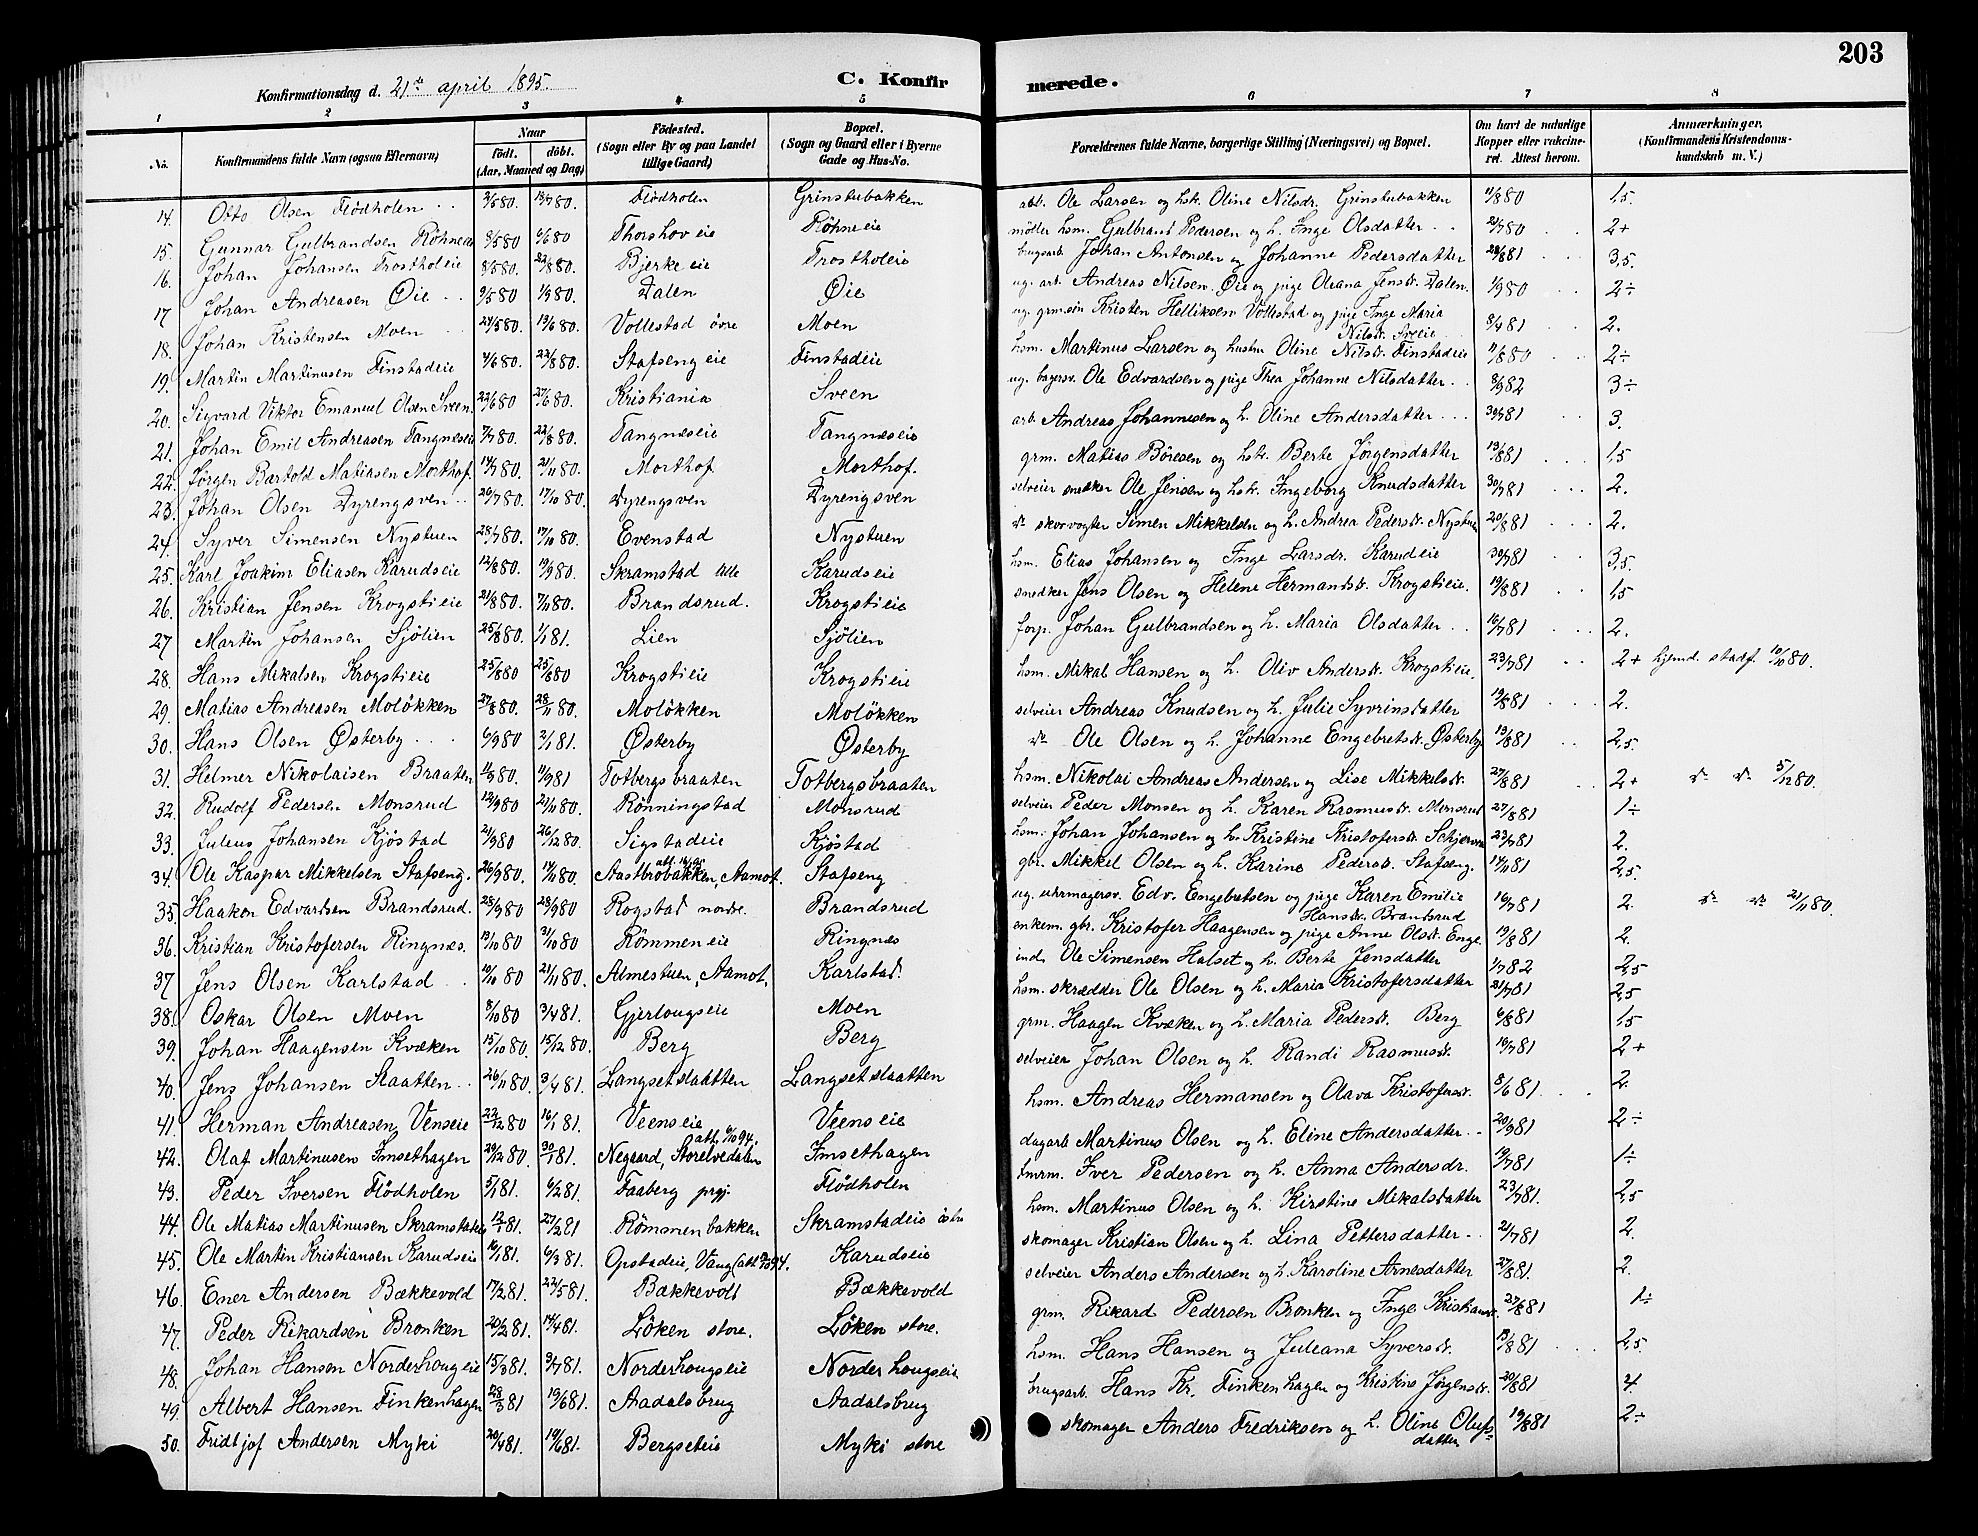 203
Konfirmationsdag d. 21de april 1895.
C. Konfirmerede.
1 2 3 4 5 6 7 8
No. Konfirmandens fulde Navn (ogsaa Efternavn) Naar födt. döbt. (Aar, Maaned og Dag) Födested. (Sogn eller By og paa Landet tillige Gaard) Bopæl. (Sogn og Gaard eller i Byerne Gade og Hus-No. Forældrenes fulde Navne, borgerlige Stilling (Næringsvei) og Bopæl. Om havt de naturlige Kopper eller vakcineret. Attest herom. Anmærkninger. (Konfirmandens Kristendomskundskab m. V.)
14. Otto Olsen Flödholen 80. 80. Flödholen Grinstubakken Ole Larsen og hstr. Oline Nilsdr. Grinstubakken 11/8 80 1,5.
15. Gunnar Gulbrandsen Röhneeie 9/5 80 6/6 80 Thorshov eie Röhneeie möller hsm. Gulbrand Pedersen og h. Inge Olsdatter 21/7 80 2+
16. Johan Johansen Trostholeie 8/5 80. 22/8 80. Bjerke eie Trostholeie brugsarb. Johan Antonsen og Johanne Pedersdatter 28/8 81 3,5.
17 Johan Andreasen Øie 9/5 80 1/9 80. Dalen Øie ug. arb. Andreas Nilsen Øie og pige Oleana Jensdr. Dalen. 1/9 80 2÷
18. Johan Kristensen Moen 23/5 80. 13/6 80. Vollestad övre Moen ug. grm.sön Kristen Helliksen Vollestad og pige Inge Maria Nilsdr. Sveeie 8/4 81 2.
19. Martin Martinusen Finstadeie 80. 22/8 80. Stafseng eie Finstadeie hsm. Martinus Larsen og hustru Oline Nilsdr. Finstadeie 11/8 80 2÷
20. Sigvard Viktor Emanuel Olsen Sveen. 22/6 80 27/6 80. Kristiania Sveen ug. bagersv. Ole Edvardsen og pige Thea Johanne Nilsdatter 8/9 82 3÷
21. Johan Emil Andreasen Tangnæseie 7/7 80. 22/8 80. Tangnæseie Tangnæseie arb. Andreas Johannesen og h. Oline Andersdatter 30/7 81 3.
22. Jörgen Bartold Matiasen Morthof. 14/7 80. 21/11 80. Morthof Morthof. grm. Matias Böresen og hstr. Berte Jörgensdatter 19/8 81 1,5
23. Johan Olsen Dyrengsven 20/7 80. 17/10 80. Dyrengsven Dyrengsven selveier snedker Ole Jensen og hstr. Ingeborg Knudsdatter 30/7 81 2.
24. Syver Simensen Nystuen 28/7 80. 17/10 80. Evenstad Nystuen do skovvogter Simen Mikkelsen og h. Andrea Pedersdr. Nystuen 20/8 81 2.
25. Karl Joakim Eliasen Karudseie 12/8 80. 19/9 80. Skramstad lille Karudseie hsm. Elias Johansen og Inge Larsdr. Karudeie 30/7 81 3,5.
26. Kristian Jensen Krogstieie 21/8 80. 7/11 80. Brandsrud. Krogstieie snedker Jens Olsen og Helene Hermandsdr. Krogstieie. 19/8 81 1,5
27 Martin Johansen Sjölien 25/8 80. 1/1 81. Lien Sjölien forp. Johan Gulbrandsen og h. Maria Olsdatter 16/7 81 2.
28. Hans Mikalsen Krogstieie 25/8 80 25/8 80 Krogstieie Krogstieie hsm. Mikal Hansen og h. Oliv Andersdr. Krogstieie. 23/7 81 2+ hjemd. stadf. 10/10 80.
29. Matias Andreasen Molökken 27/8 80. 28/11 80. Molökken Molökken selveier Andreas Knudsen og h. Julie Syvrinsdatter 19/8 81 2.
30. Hans Olsen Østerby 6/9 80 2/1 81. Østerby Østerby do Ole Olsen og h. Johanne Engebretsdr. Østerby 19/8 81 2,5.
31. Helmer Nikolaisen Braaten 11/9 80. 11/9 81 Totbergsbraaten Totbergsbraaten hsm. Nikolai Andreas Andersen og Lise Mikkelsdr. 27/8 81 2+ do do 5/12 80.
32. Rudolf Pedersen Monsrud 12/9 80 21/11 80. Rönningstad Monsrud selveier Peder Monsen og h. Karen Rasmusdr. Monsrud 27/8 81 1÷
33. Julius Johansen Kjöstad 21/9 80 26/12 80. Sigstadeie Kjöstad hsm. Johan Johansen og h. Kristine Kristofersdr. 23/7 81 2.
34. Ole Kaspar Mikkelsen Stafseng. 26/9 80. 14/11 80. Aastbrobakken, Aamot. Stafseng gbr. Mikkel Olsen og h. Karine Pedersdr. Stafseng. 14/11 81 2,5.
35. Haaken Edvardsen Brandsrud. 28/9 80 28/9 80 Rogstad nordre. Brandsrud ug. uhrmagersv. Edv. Engebretsen og pige Karen Emilie Hansdr. Brandsrud 16/7 81 2. do do 21/11 80.
36. Kristian Kristofersen Ringnæs. 13/10 80 31/10 80 Römmen eie Ringnæs enkem. gbr. Kristofer Haagensen og pige Anne Olsdr. Enge. 19/8 81 2.
37 Jens Olsen Karlstad 10/10 80 21/11 80. Almestuen, Aamot. Karlstad ind. Ole Simensen Halset og h. Berte Jensdatter 1/7 82 2,5
38. Oskar Olsen Moen 8/10 80 3/4 81. Gjerlougseie Moen hsm. skrædder Ole Olsen og h. Maria Kristofersdatter 21/7 81 2,5
39. Johan Haagensen Kvæken 15/10 80. 15/12 80. Berg Berg grm. Haagen Kvæken og h. Maria Pedersdr. Berg 6/8 81 1,5
40. Jens Johansen Slaatten 26/11 80. 3/4 81. Langsetslaatten Langsetslaatten selveier Johan Olsen og h. Randi Rasmusdr. 19/7 81 2+
41. Herman Andreasen Venseie 22/12 80 16/1 81. Veenseie Veenseie hsm. Andreas Hermansen og Olava Kristofersdr. 8/6 81. 2.
42. Olaf Martinusen Imsethagen 29/12 80. 30/1 81. Negaard, Storelvedalen att. 94. Imsethagen dagarb. Martinus Olsen og h. Eline Andersdatter 20/9 81 2÷
43. Peder Iversen Flödholen 5/1 81. 6/2 81. Faaberg prgj. Flödholen tmrm. Iver Pedersen og h. Anna Andersdr. 19/7 81 1÷
44. Ole Matias Martinusen Skramstadeie 12/1 81. 27/2 81 Römmenbakken Skramstadeie östre hsm. Martinus Olsen og h. Kirstine Mikalsdatter 23/7 81. 2,5
45. Ole Martin Kristiansen Karudseie 16/1 81. 6/3 81. Opstadeie, Vang (att 94. Karudseie skomager Kristian Olsen og h. Lina Pettersdatter 21/7 81 2.
46. Ener Andersen Bækkevold 17/2 81 22/5 81. Bækkevold Bækkevold selveier Anders Andersen og h. Karoline Arnesdatter 27/8 81. 2.
47. Peder Rikardsen Bronken 20/2 81. 14/4 81. Löken store. Löken store. grm. Rikard Pedersen Bronken og Inge Kristiansdr. 27/8 81 1÷
48. Johan Hansen Norderhougeie 15/3 81. 3/7 81. Norderhougseie Norderhougseie hsm. Hans Hansen og Juleana Syversdr. 19/8 81 2,5
49. Albert Hansen Finkenhagen 28/3 81 19/6 81. Aadalsbrug Aadalsbrug brugsarb. Hans Kr. Finkenhagen og Kristine Jörgensdr. 20/8 81 4.
50. Fridtjof Andersen Myki 20/4 81. 19/6 81. Bergseteie Myki store skomager Anders Fredriksen og h. Oline Olufsdatter 19/8 81 2÷